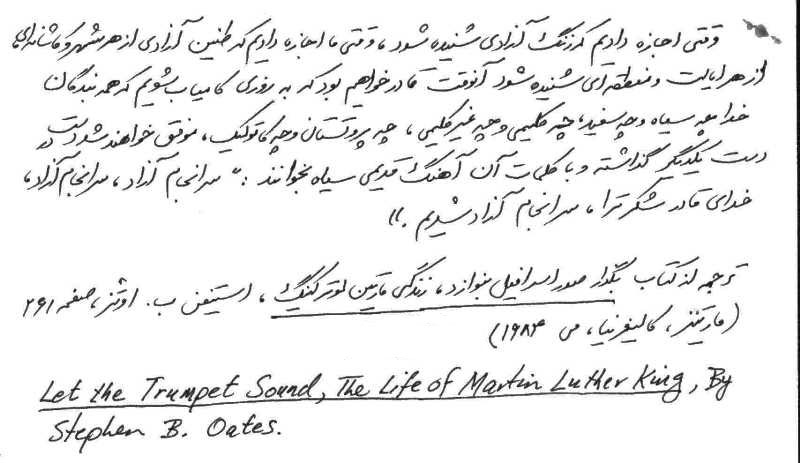 وقتی اجازه دادیم که زنگ آزادی شنیده شود، وقتی ما اجازه دادیم که طنین آزادی از هر شهر و کاشانه‌ای،
از هر ایالت و منطقه‌ای شنیده شود آنوقت قادر خواهیم بود که به روزی کامیاب شویم که همه بندگان
خدا چه سیاه و چه سفید، چه کلیمی و چه غیر کلیمی، چه پروتستان و چه کاتولیک، موفق خواهند شد دست در
دست یکدیگر گذاشته و با کلمات آن آهنگ قدیمی سیاه بخوانند: "سرانجام آزاد، سرانجام آزاد،
خدای قادر شکر ترا، سرانجام آزاد شدیم."
ترجمه از کتاب بگذار صور اسرافیل بنوازد، زندگی مارتین لوتر کینگ، استیفن ب. اوتز، صفحه ۲۶۱
(مارتینز، کالیفرنیا، می ۱۹۸۴)
Let the Trumpet Sound, The Life of Martin Luther King, By
Stephen B. Oates.